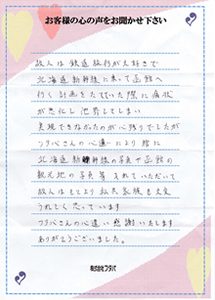 お客様の心の声をお聞かせ下さい
故人は鉄道旅行が大好きで
北海道新幹線に乗って函館へ
行く計画をたてていた際に病状
が悪化し他界してしまい
実現できなかったのが心残りでしたが
フタバさんの心遣いにより棺に
北海道新幹線の写真や函館の
観光地の写真等入れていただいて
故人はもとより私共家族も大変
うれしく思っています
フタバさんの心遣い感謝いたします
ありがとうございました。
株式会社フタバ